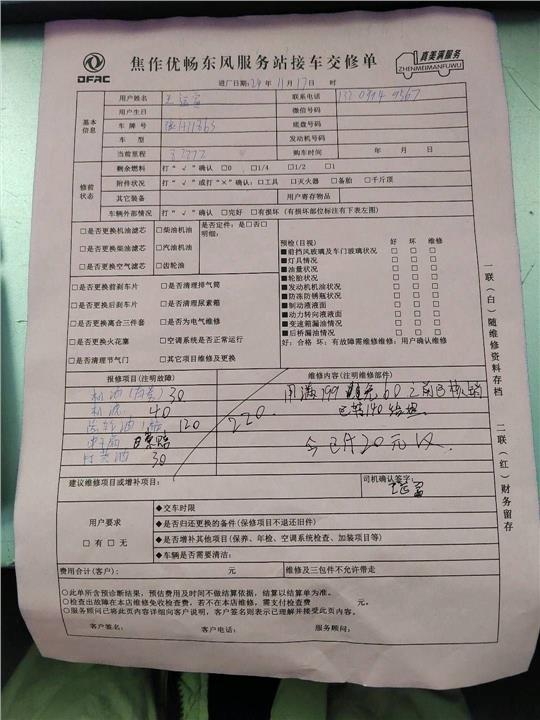 DFAC
焦作优畅东风服务站接车交修单
真美满服务
ZHENMEIMANFUWU
进厂日期:24年 11月 17日 时
基本信息
用户姓名
联系电话
用户生日
微信号码
车 牌 号
底盘号码
车 型
发动机号码
当前里程
购车时间 年 月 日
修前状态
剩余燃料 打“√”确认 □0 □1/4 □1/2 □1
附件状况 打“√”或打“×”确认:□工具 □灭火器 □备胎 □千斤顶
其它装备
用户寄存物品
车辆外部情况 打“√”确认 □完好 □有损坏(有损坏部位标注有下表左图)
□是否更换机油滤芯 □柴油机油
□是否更换柴油滤芯 □汽油机油
□是否更换空气滤芯 □齿轮油
是否定件:是□否□
明细:
□是否更换前刹车片 □是否清理排气筒
□是否更换后刹车片 □是否清理尿素箱
□是否更换离合三件套 □是否为电气维修
□是否更换火花塞 □空调系统是否正常运行
□是否清理节气门 □其它项目维修及更换
预检(目视) 好 坏 维修
■前挡风玻璃及车门玻璃状况 □ □ □
■灯具情况 □ □ □
■油量状况 □ □ □
■轮胎状况 □ □ □
■发动机机油状况 □ □ □
■防冻防锈瓶状况 □ □ □
■制动液液面 □ □ □
■动力转向液液面 □ □ □
■变速箱漏油情况 □ □ □
■后桥漏油情况 □ □ □
好:合格 坏:有故障需维修维修:用户确认维修
报修项目(注明故障)
维修内容(注明维修部件)
30
40
120
220
30
今已付20元
建议维修项目或增补项目:
司机确认签字:
用户要求
□有 □无
◆交车时限
◆是否归还更换的备件(保修项目不退还旧件)
◆是否增补其他项目(保养、年检、空调系统检查、加装项目等)
◆车辆是否需要清洁:
费用合计(客户): 元
维修及三包件不允许带走
○此单所含预诊断结果,预估费用及时间不做结算依据,结算以结算单为准。
○检查出故障在本店维修免收检查费,若不在本店维修,需支付检查费 元。
○服务顾问已将此页内容详细向客户说明,客户签名则表示已理解并接受此页内容。
客户签名: 客户电话: 服务顾问:
一联(白)随维修资料存档
二联(红)财务留存